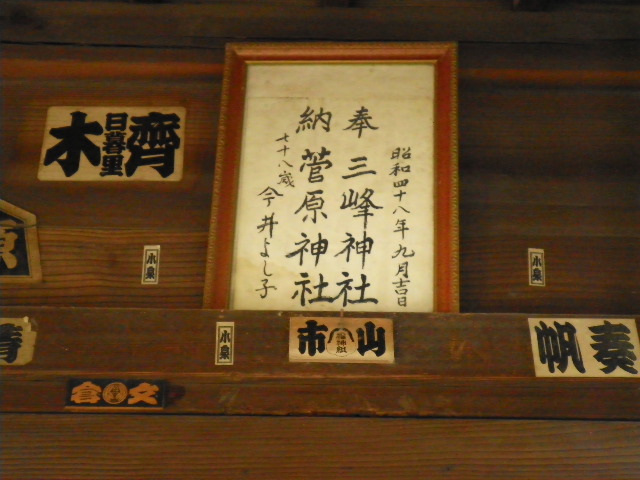 昭和四十八年九月吉日
奉 三峰神社
納 菅原神社
七十八歳
今井よし子
齊木
日暮里
小泉
小泉
小泉
山市
奏帆
文倉